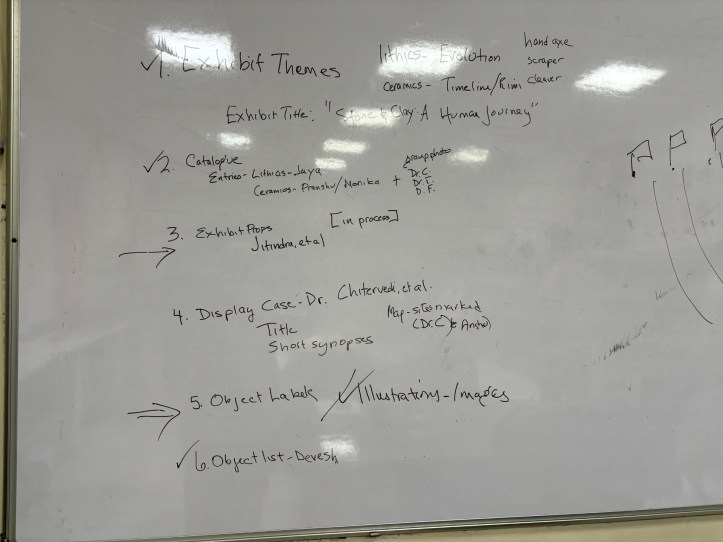 1. Exhibit Themes
lithics - Evolution
hand axe
scraper
cleaver
ceramics - Timeline/Rim
Exhibit Title: "Stone & Clay: A Human Journey"
2. Catalogue
Entries - Lithics - Jaya
Ceramics - Pranshu/Monika +
group photo
Dr. C.
Dr. T.
D. F.
3. Exhibit Props [in process]
Jitindra, et al
4. Display Case - Dr. Chitervedi, et al.
Title
Short synopses
Map - sites marked
(Dr. C &
5. Object Labels Illustrations - Images
6. Object list - Devesh